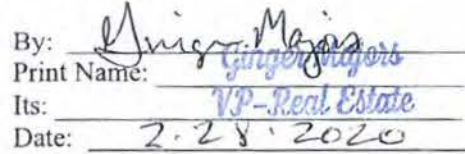 By: Ginger Majors
Print Name: Ginger Majors
Its: VP-Real Estate
Date: 2.28.2020